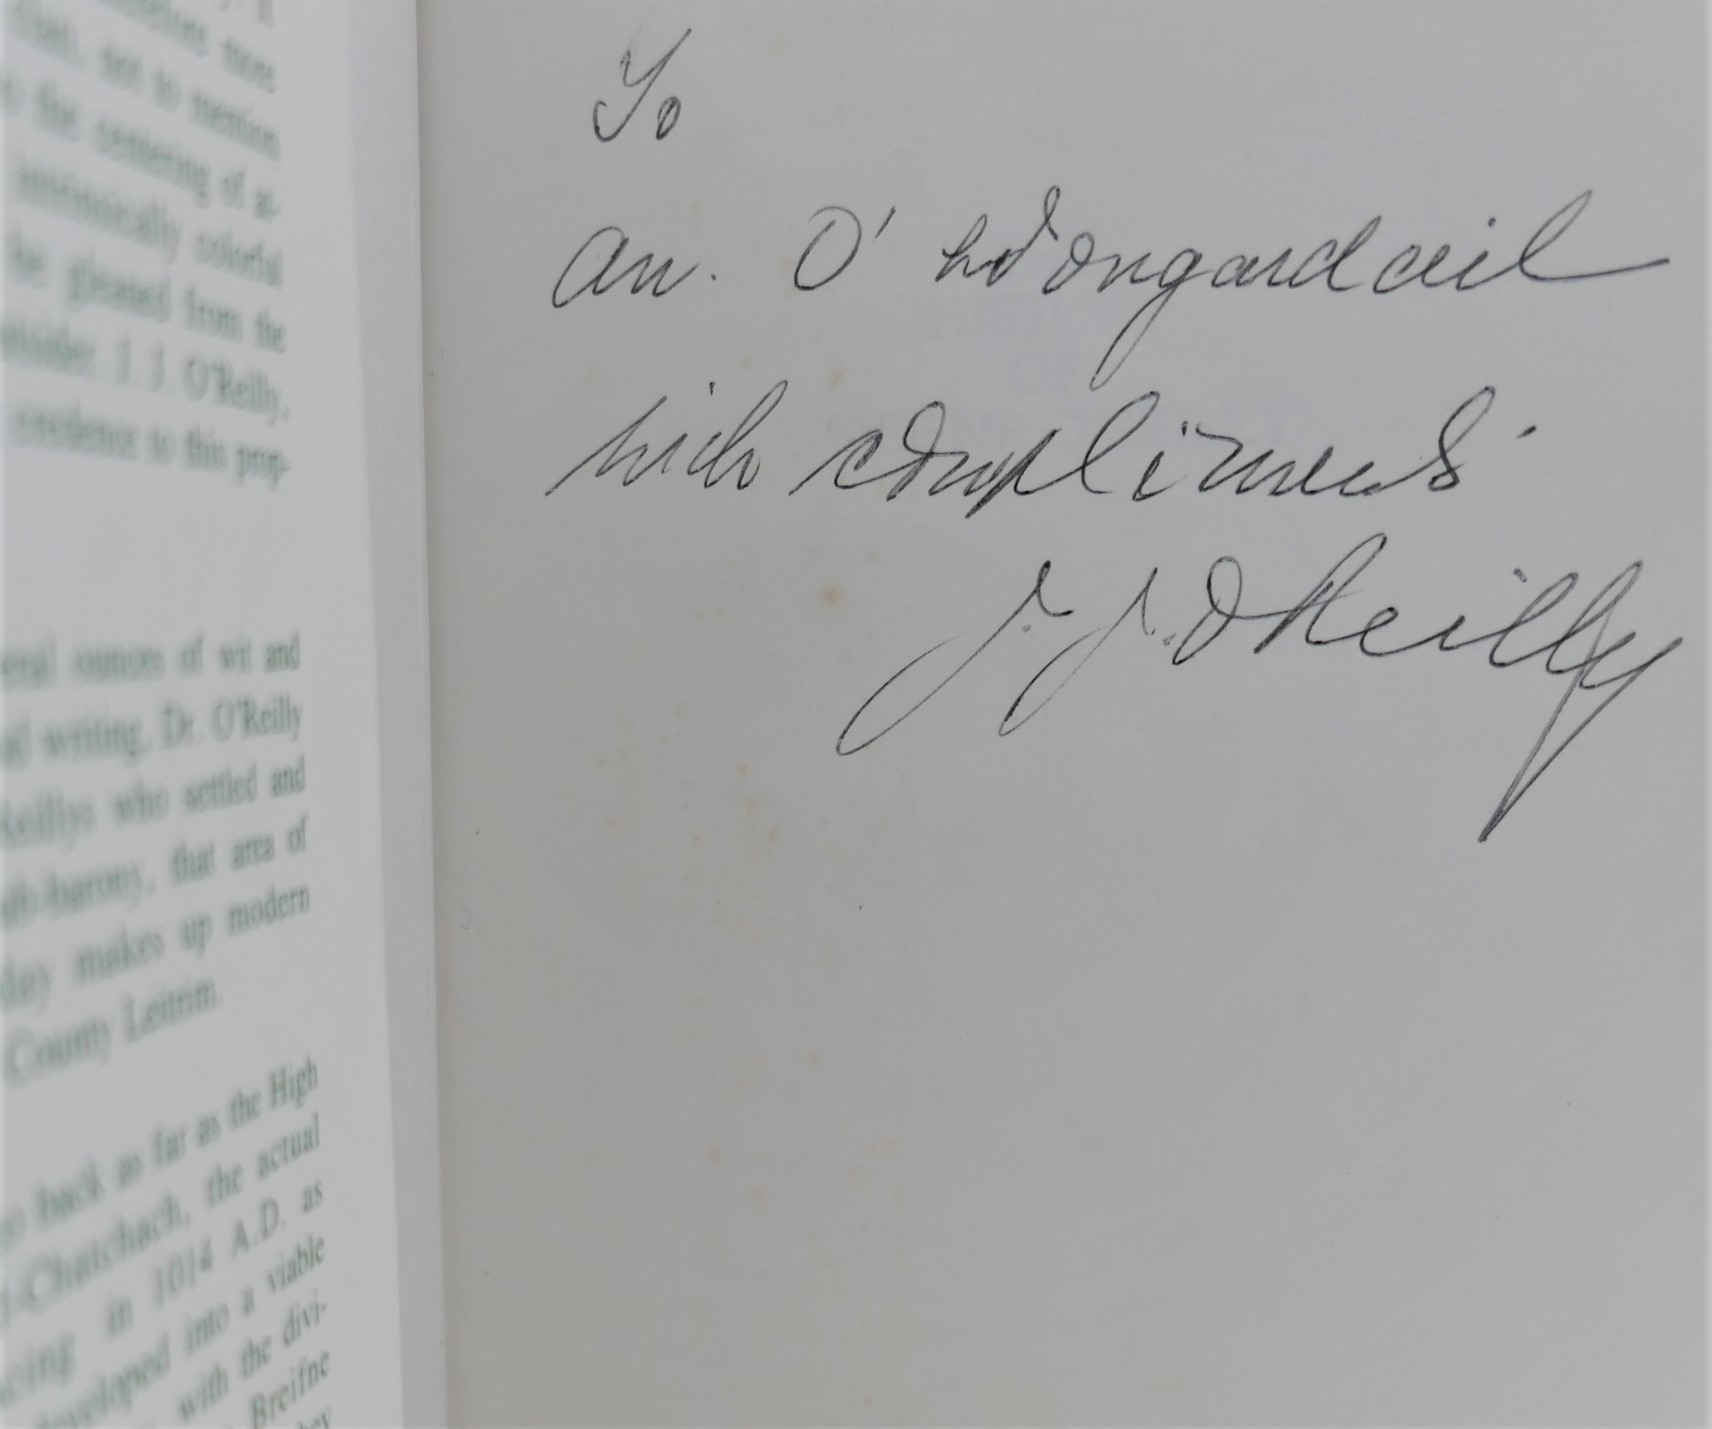 more
that, not to mention
the centering of at-
intrinsically colorful
be gleaned from the
J. J. O'Reilly,
credence to this prop-
ounces of wit and
writing, Dr. O'Reilly
who settled and
that area of
makes up modern
County Leitrim.
back as far as the High
the actual
in 1014 A.D. as
developed into a viable
with the divi-
Breifne
To
an. O'
with compliments
J. J. O'Reilly